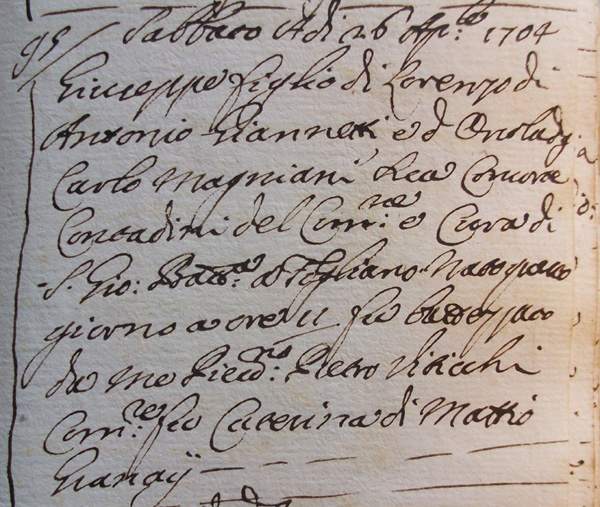 95/ Sabbato Adi 26 Ap:le 1704
Giuseppe figlio di Lorenzo di
Antonio Giannetti e d Orsola di
Carlo Magniani
Contadini del Com:ne e Cura di
S. Gio: Batt:a a Fogliano Nato
giorno a ore 11 fu battezzato
da me Pietro
Com:re fu Caterina di Mattio